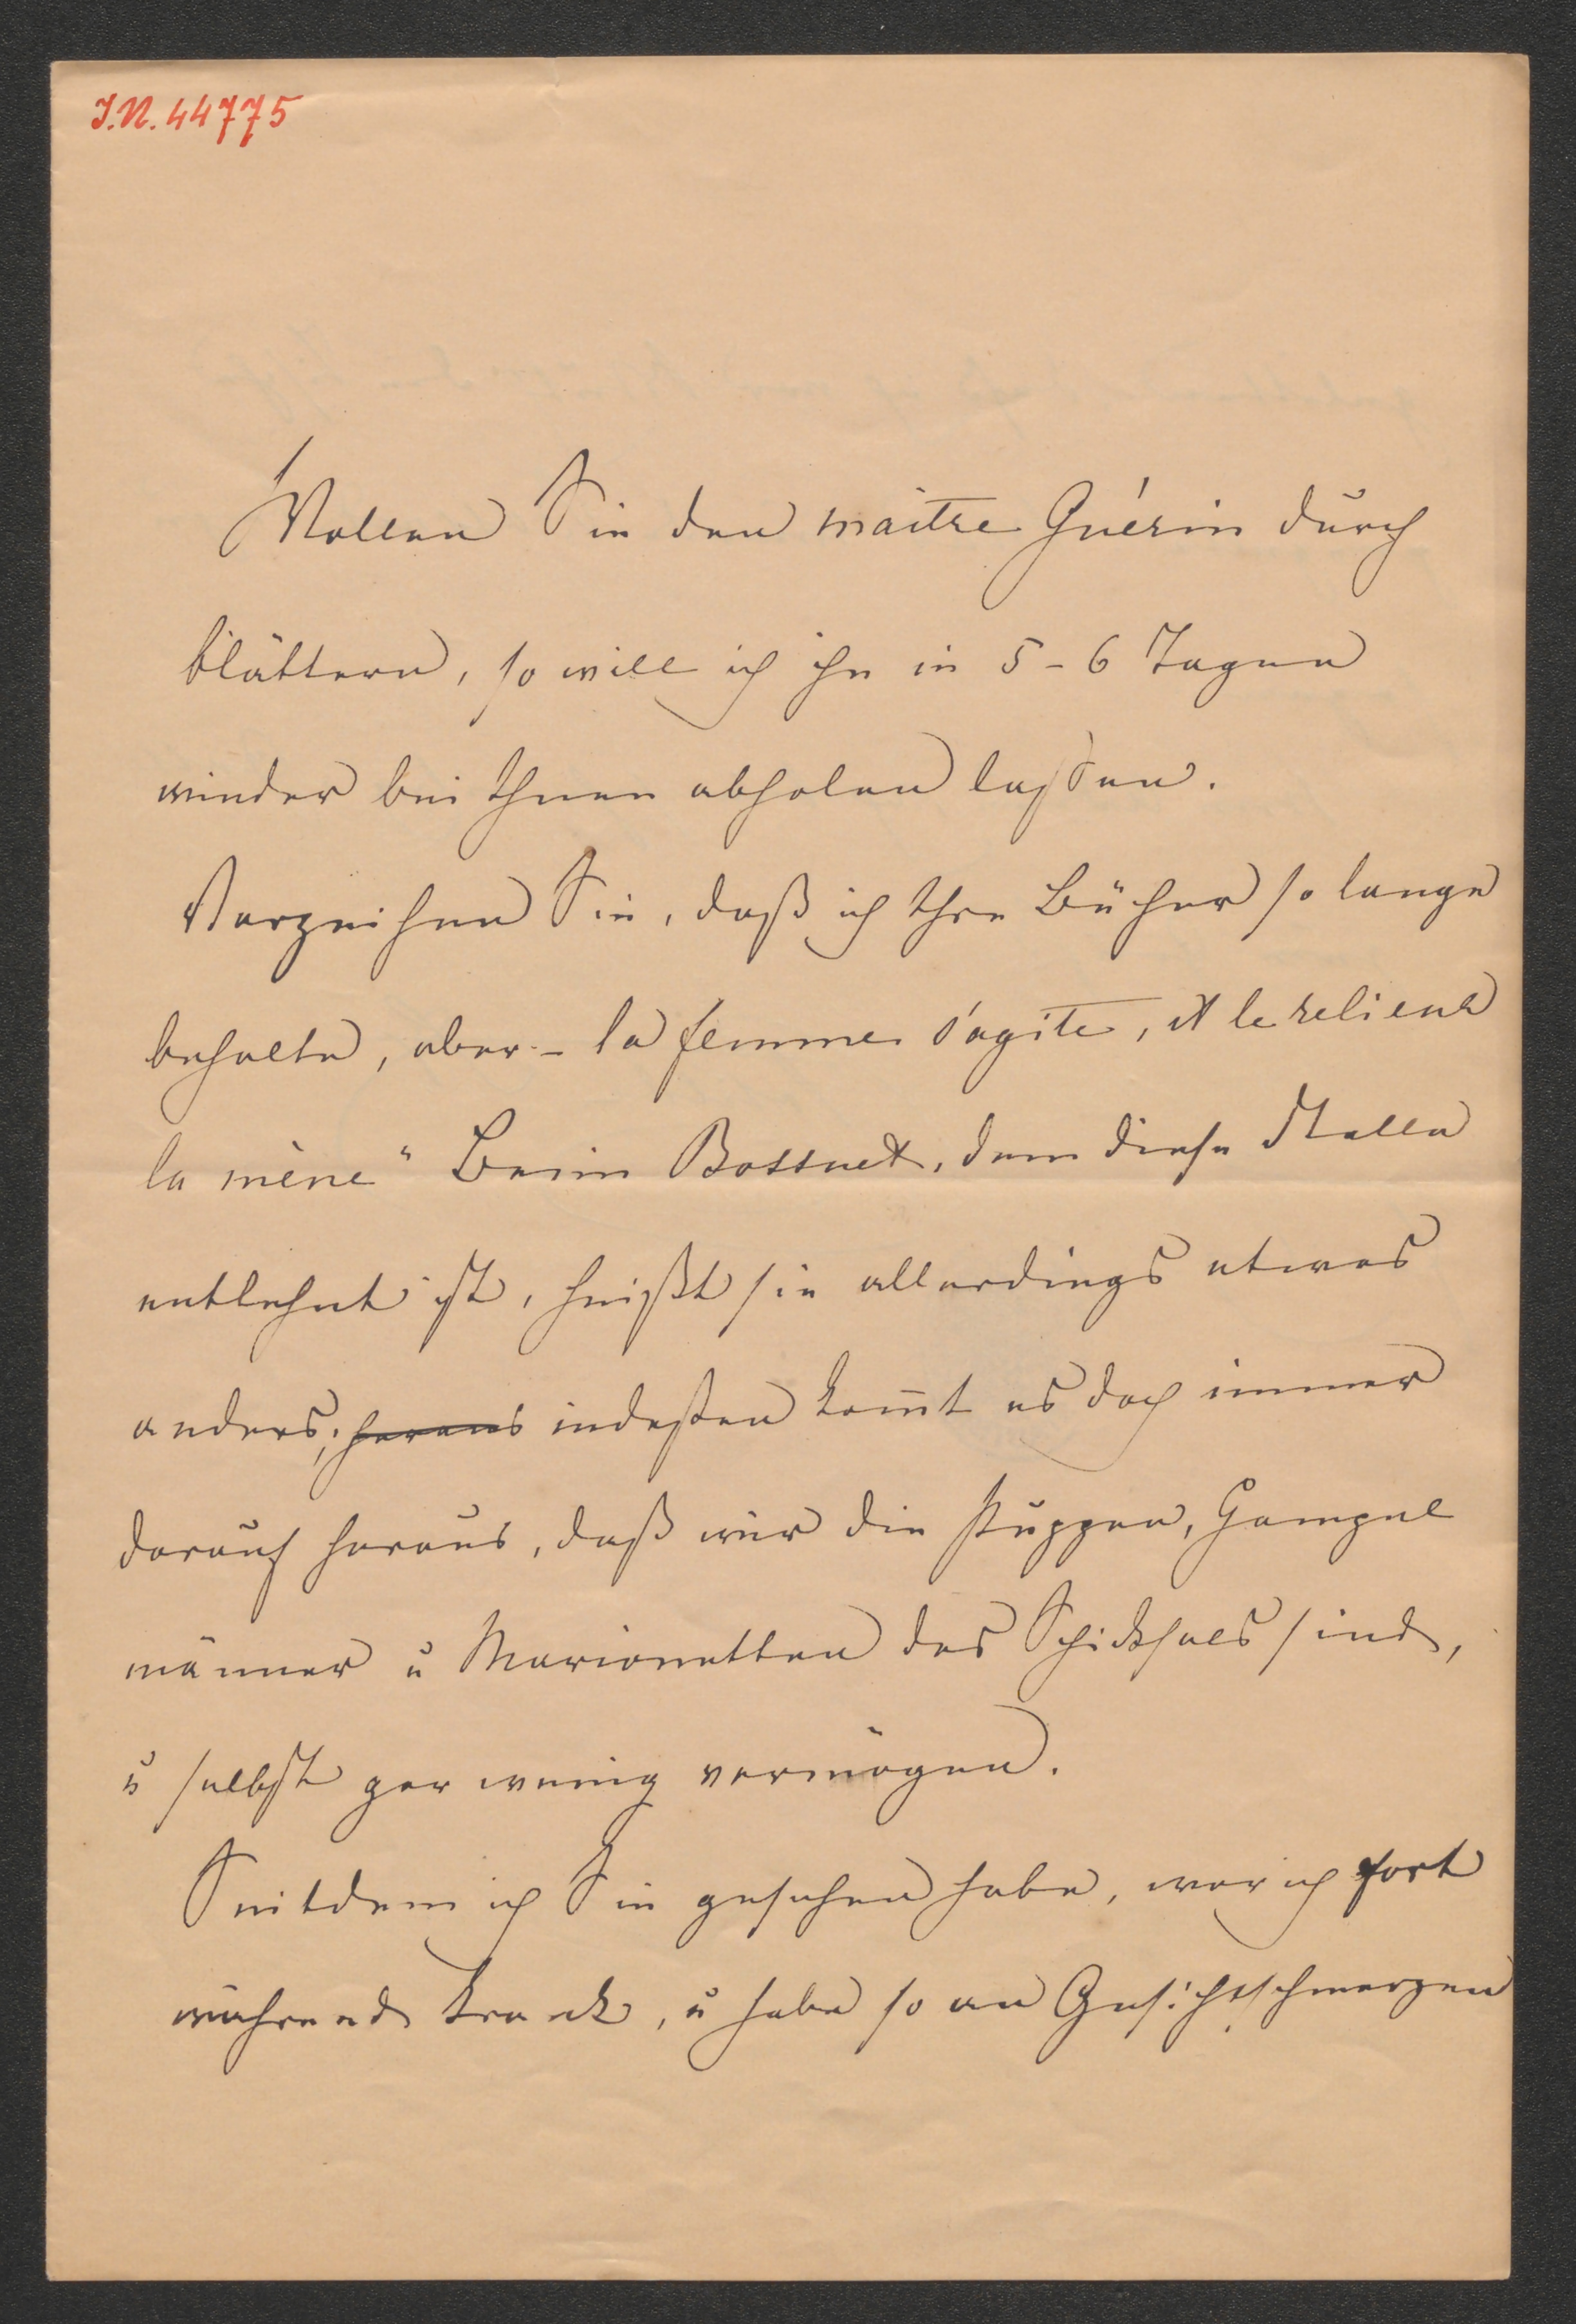 J.N. 44775
Wollen Sie den maître Guérin durch
blättern, so will ich ihn in 5 - 6 Tagen
wieder bei Ihnen abholen lassen.
Verzeihen Sie, daß ich Ihre Bücher so lange
behalte, aber – la femme s'agite, et le relieur
la mène" Beim Bossuet, dem diese Stelle
entlehnt ist, heißt sie allerdings etwas
anders; heraus indessen kom̄t es doch immer
darauf heraus, daß wir die Puppen, Hampel
männer u Marionetten des Schicksals sind,
u selbst gar wenig vermögen.
Seitdem ich Sie gesehen habe, war ich fort
während krank, u habe so an Gesichtschmerzen